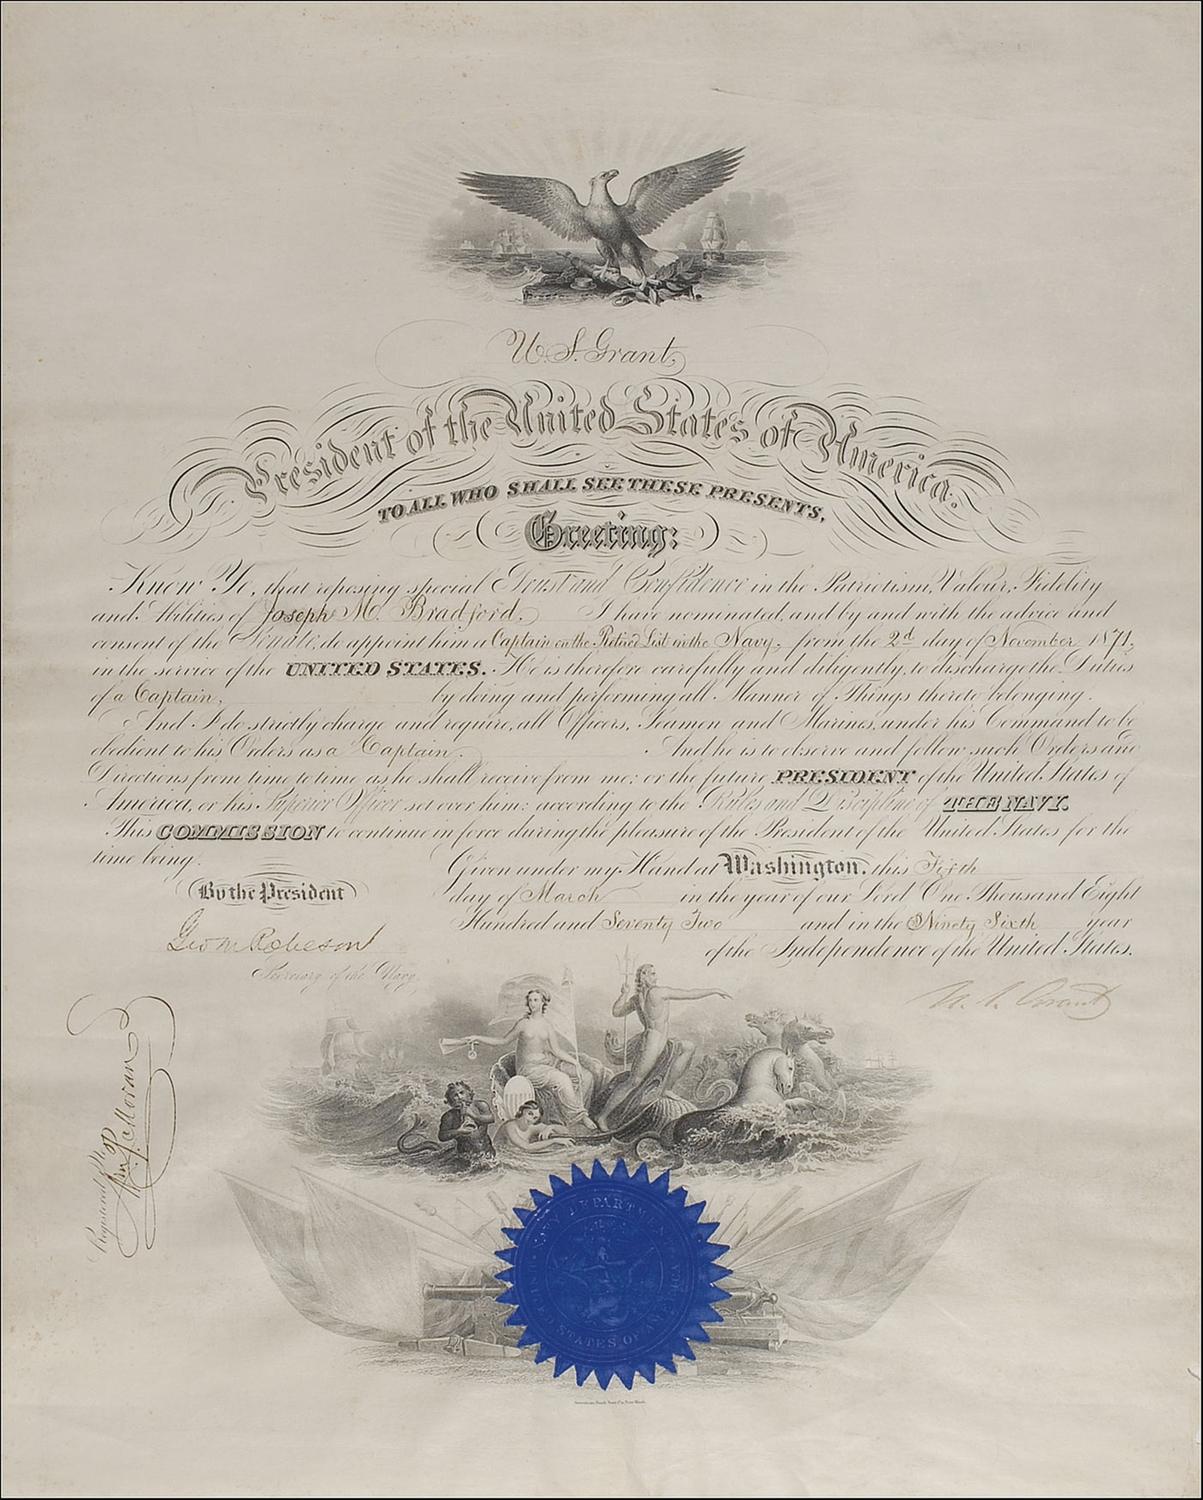 U. S. Grant,
President of the United States of America.
TO ALL WHO SHALL SEE THESE PRESENTS,
Greeting:
Know Ye, that reposing special Trust and Confidence in the Patriotism, Valour, Fidelity
and Abilities of Joseph M. Bradford, I have nominated, and by and with the advice and
consent of the Senate, do appoint him a Captain on the Retired List in the Navy, from the 2d day of November 1871,
in the service of the UNITED STATES. He is therefore carefully and diligently, to discharge the Duties
of a Captain, by doing and performing all Manner of Things thereto belonging.
And I do strictly charge and require, all Officers, Seamen and Marines, under his Command to be
obedient to his Orders as a Captain. And he is to observe and follow such Orders and
Directions from time to time as he shall receive from me; or the future PRESIDENT of the United States of
America, or his Superior Officer set over him; according to the Rules and Discipline of THE NAVY.
This COMMISSION to continue in force during the pleasure of the President of the United States for the
time being.
Given under my Hand at Washington, this Fifth
By the President
day of March in the year of our Lord One Thousand Eight
Hundred and Seventy Two and in the Ninety Sixth year
Geo M Robeson
of the Independence of the United States.
Secretary of the Navy.
U. S. Grant
Registered Wm P Moran
NAVY DEPARTMENT
UNITED STATES OF AMERICA